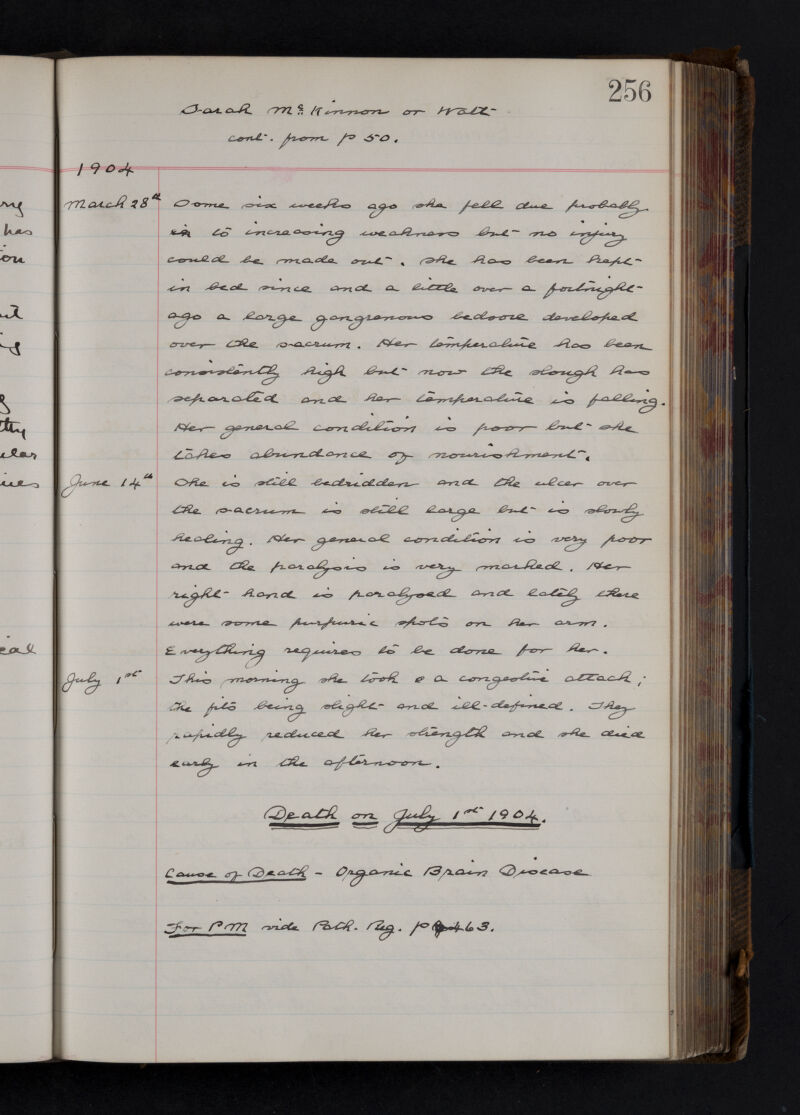 256
Sarah McKinnon or Watt
cont. from p 50.
1904
March 28th Some six weeks ago she fell due probably
to increasing weakness but no injury
could be made out. She has been kept
in bed since and a little over a fortnight
ago a large gangrenous bedsore developed
over the sacrum. Her temperature has been
consistently high but now the slough has
separated and her temperature is falling.
Her general condition is poor but she
takes abundance of nourishment.
June 14th She is still bedridden and the ulcer over
the sacrum is still large but is slowly
healing. Her general condition is very poor
and the paralysis is very marked. Her
right hand is paralysed and lately there
were some purpuric spots on her arm.
Everything requires to be done for her.
July 1st This morning she took a congestive attack;
the fits being slight and ill-defined. They
rapidly reduced her strength and she died
early in the afternoon.
Death on July 1st 1904.
Cause of Death - Organic Brain Disease
For PM vide Path. Reg. p 463.
has